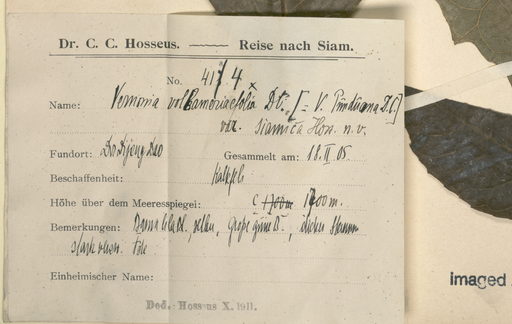 Dr. C. C. Hosseus. —— Reise nach Siam.
No. 4174
Name: Vernonia volkameriaefolia DC. [= V. Punduana DC]
var. siamica Hoss. n. v.
Fundort: Doi Djieng Dao Gesammelt am: 18. II 05
Beschaffenheit: Kalkfels
Höhe über dem Meeresspiegel: c 1700m.
Bemerkungen: , Große grüne B.,
stark
Einheimischer Name:
Ded. Hosseus X. 1911.
imaged